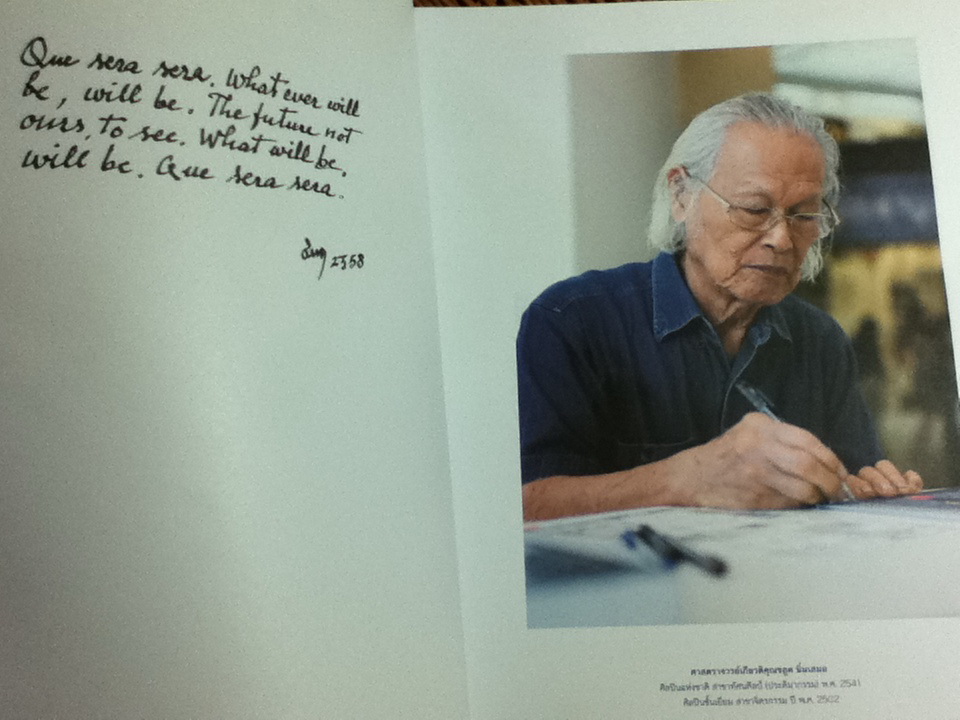 Que sera sera. What ever will
be, will be. The future not
ours, to see. What will be,
will be. Que sera sera.
2558
ศาสตราจารย์เกียรติคุณชลูด นิ่มเสมอ
ศิลปินแห่งชาติ สาขาทัศนศิลป์ (ประติมากรรม) พ.ศ. 2541
ศิลปินชั้นเยี่ยม สาขาจิตรกรรม ปี พ.ศ. 2502